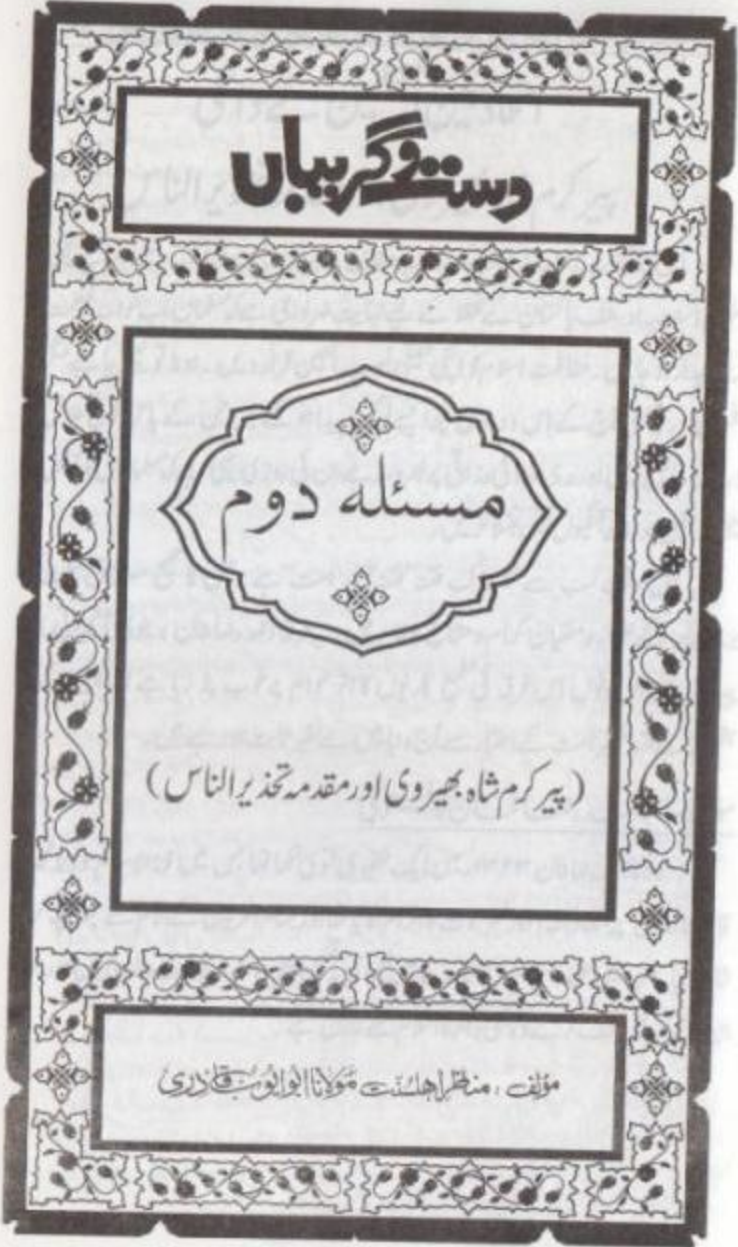 دست و گریباں
مسئلہ دوم
(پیر کرم شاہ بھیروی اور مقدمہ تحذیر الناس)
مؤلف : مناظر اہلسنت مولانا ابو ایوب قادری